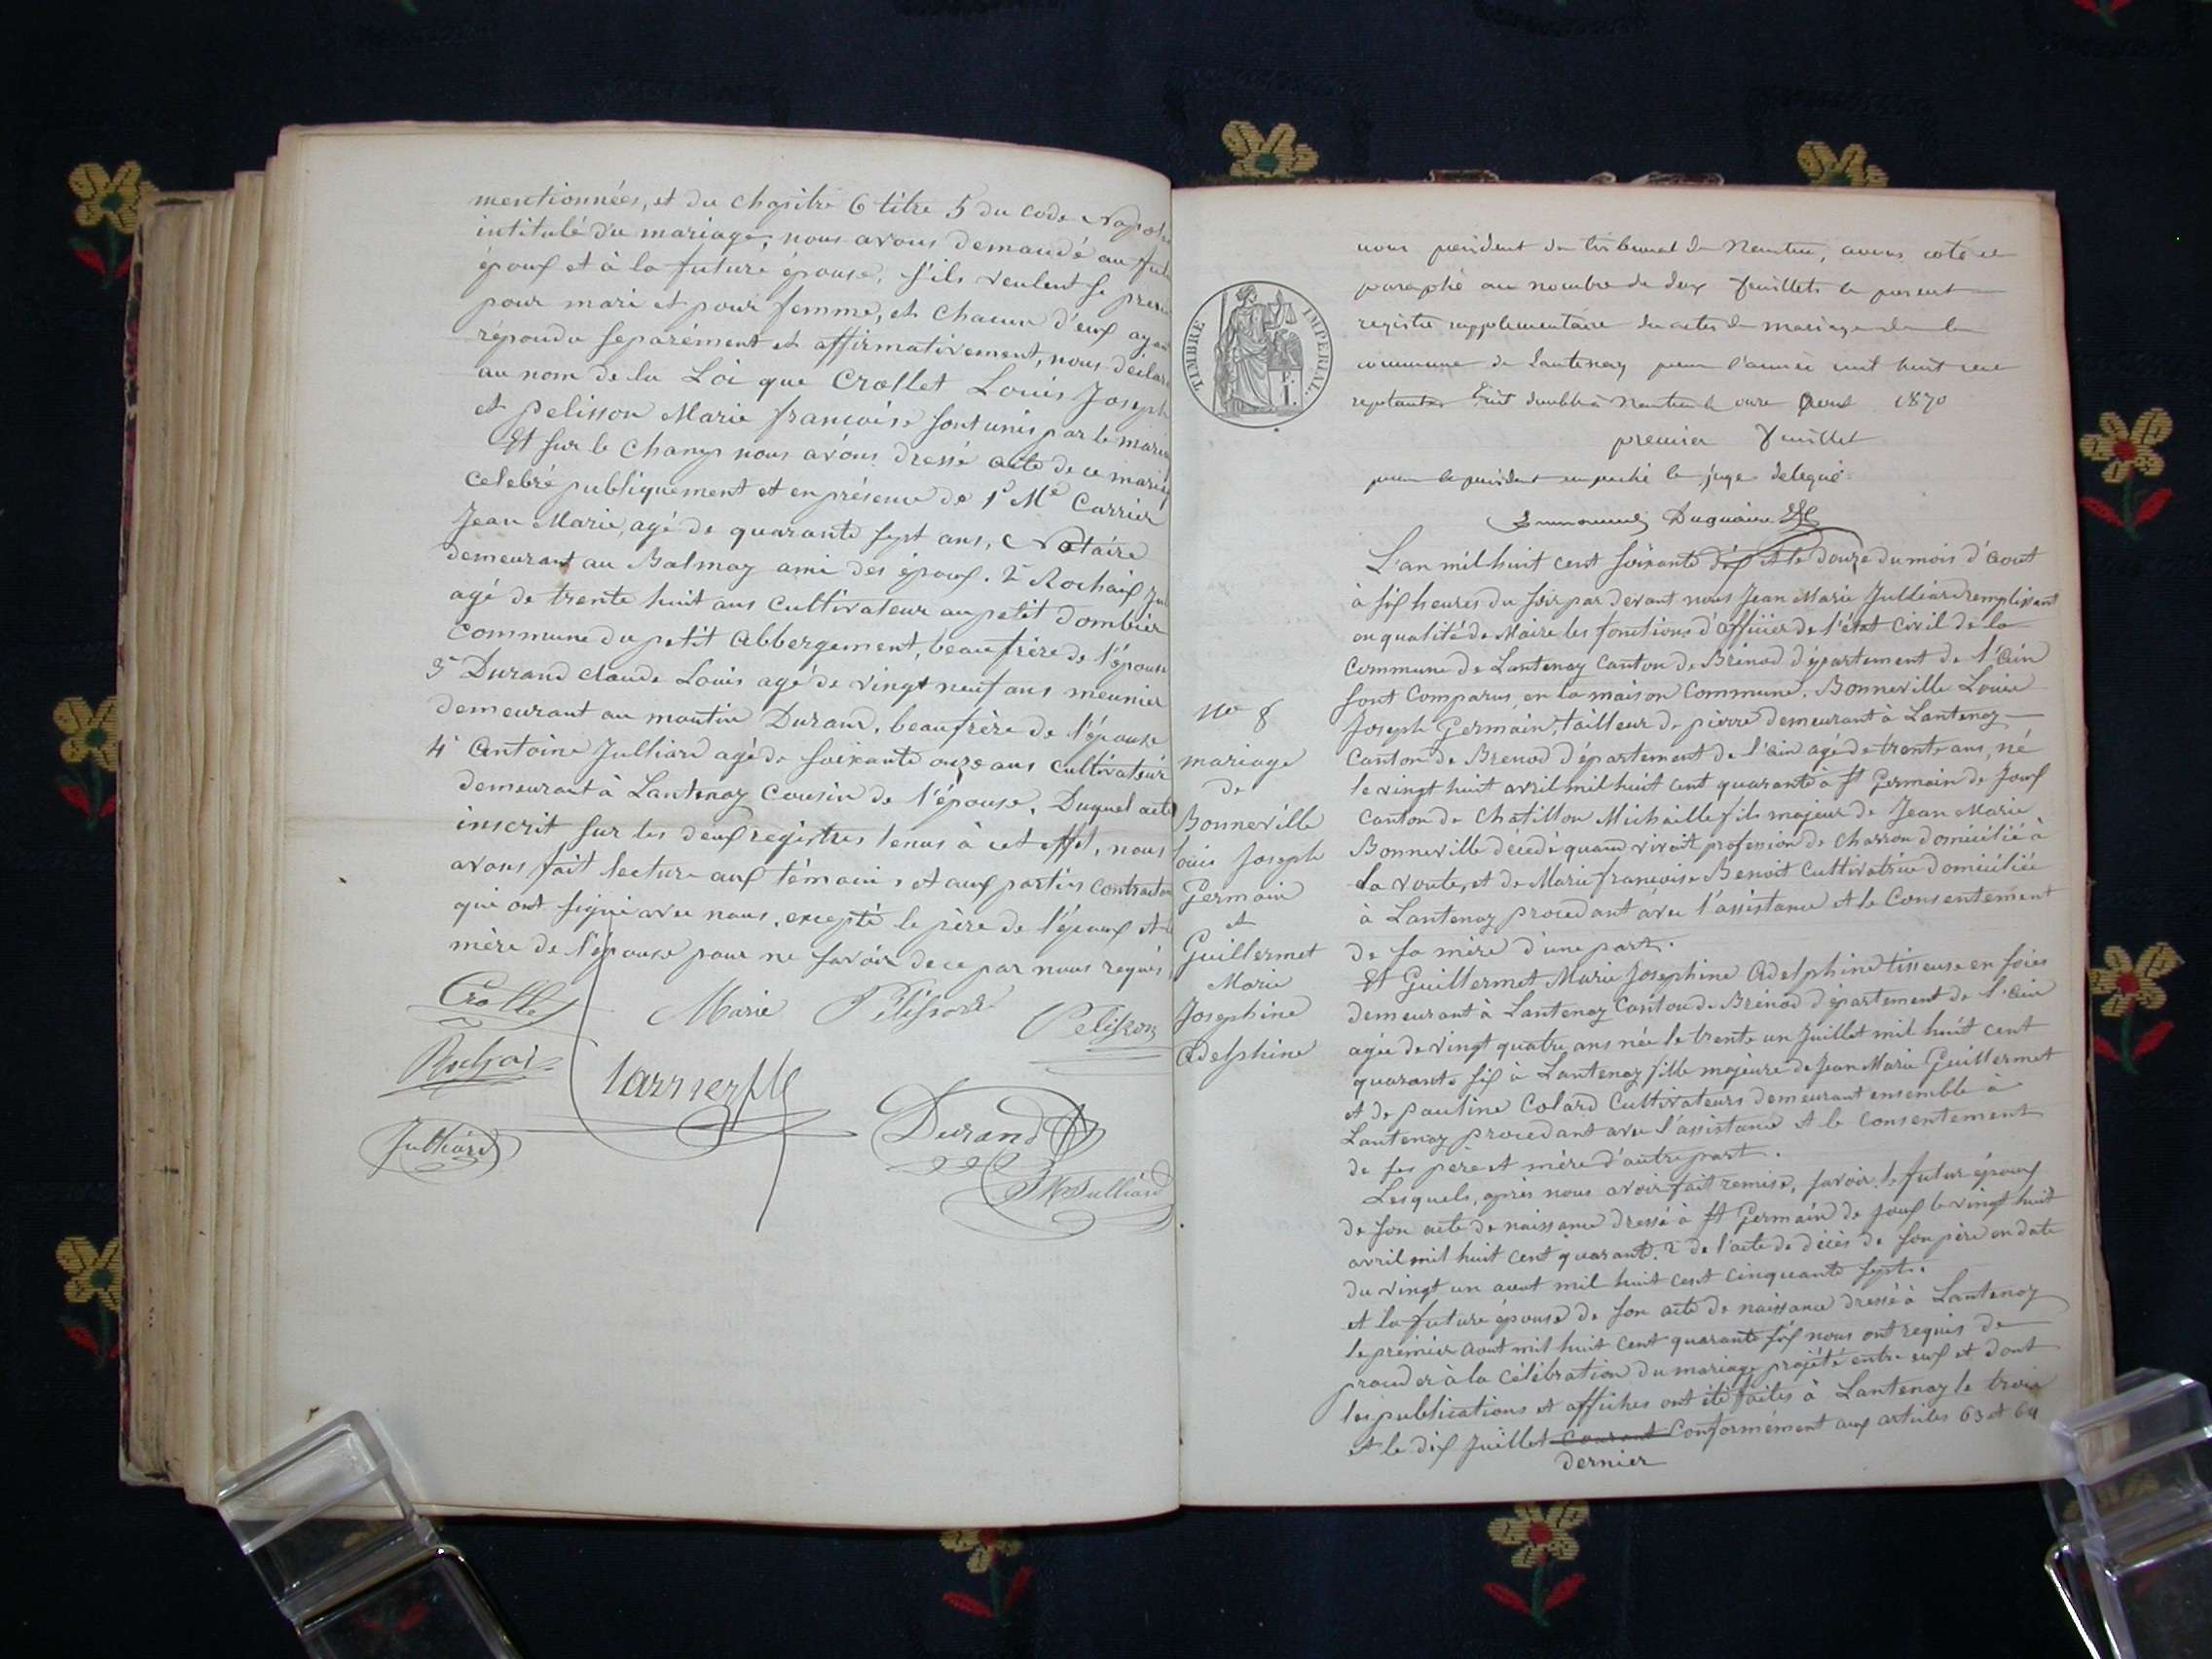 mentionnées, et du chapitre 6 titre 5 du code Napoléo
intitulé du mariage, nous avons demandé au futu
époux et à la future épouse, s'ils veulent se pren
pour mari et pour femme, et chacun d'eux ayan
répondu separément et affirmativement, nous déclaro
au nom de la Loi que Crollet Louis Joseph
et pelisson Marie francoise sont unis par le maria
Et sur le champ nous avons dressé acte de ce mariag
celebré publiquement et en présence de 1° Me Carrier
Jean Marie, agé de quarante sept ans, Notaire
demeurant au Balmay ami des époux. 2° Rochaix
agé de trente huit ans cultivateur au petit dombier
Commune du petit Abbergement, beaufrère de l'épouse
3° Durand claude Louis agé de vingt neuf ans meunier
demeurant au moulin Durand, beaufrère de l'épouse
4° Antoine Julliard agé de soixante onze ans cultivateur
demeurant à Lantenay cousin de l'épouse. Duquel acte
inscrit sur les deux registres tenus à cet effet, nous
avons fait lecture aux témoins et aux parties contractan
qui ont signé avec nous, excepté le père de l'époux et
mère de l'épouse pour ne savoir de ce par nous requis
Crollet
Marie Pélisson
Pelisson
Rochaix
Carrier
Julliard
Durand
JM Julliard
TIMBRE IMPERIAL
nous président du tribunal de Nantua, avons coté et
paraphé au nombre de deux feuillets le présent
registre supplementaire des actes de mariage de la
commune de Lantenay pour l'année mil huit cent
septante Fait double à Nantua le onze Aout 1870
premier feuillet
pour le président empeché le juge delegué
L'an mil huit cent soixante dix et le douze du mois d'aout
à six heures du soir par devant nous Jean Marie Julliard remplissant
en qualité de Maire les fonctions d'officier de l'état civil de la
Commune de Lantenay canton de Brénod département de l'Ain
sont comparus, en la maison commune, Bonneville Louis
Joseph Germain, tailleur de pierre demeurant à Lantenay
canton de Brenod département de l'ain agé de trente ans, né
le vingt huit avril mil huit cent quarante à St Germain de Joux
canton de Chatillon Michaille fils majeur de Jean Marie
Bonneville décédé quand vivait profession de charron domicilié à
La voute, et de Marie francoise Benoit cultivatrice domiciliée
à Lantenay procedant avec l'assistance et le Consentement
de sa mère d'une part.
Et Guillermet Marie Josephine Adelphine tisseuse en soies
demeurant à Lantenay Canton de Brénod département de l'Ain
agée de vingt quatre ans née le trente un Juillet mil huit cent
quarante six à Lantenay fille majeure de Jean Marie Guillermet
et de pauline Colard Cultivateurs demeurant ensemble à
Lantenay procedant avec l'assistance et le consentement
de ses père et mère d'autre part.
Lesquels, après nous avoir fait remise, savoir, le futur époux
de son acte de naissance dressé à St Germain de Joux le vingt huit
avril mil huit cent quarante. 2° de l'acte de décès de son père en date
du vingt un aout mil huit cent cinquante sept.
et la future épouse de son acte de naissance dressé à Lantenay
le premier aout mil huit cent quarante six nous ont requis de
proceder à la célébration du mariage projété entre eux et dont
les publications et affiches ont été faites à Lantenay le trois
et le dix Juillet courant Conformément aux articles 63 et 64
dernier
No 8
mariage
de
Bonneville
Louis Joseph
Germain
et
Guillermet
Marie
Josephine
Adelphine